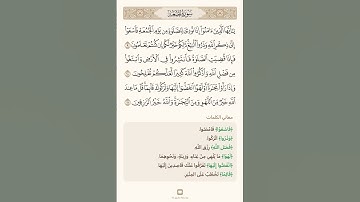 سُورَةُ الجُمُعَة
يَٰٓأَيُّهَا ٱلَّذِينَ ءَامَنُوٓا۟ إِذَا نُودِىَ لِلصَّلَوٰةِ مِن يَوْمِ ٱلْجُمُعَةِ فَٱسْعَوْا۟
إِلَىٰ ذِكْرِ ٱللَّهِ وَذَرُوا۟ ٱلْبَيْعَ ۚ ذَٰلِكُمْ خَيْرٌ لَّكُمْ إِن كُنتُمْ تَعْلَمُونَ ٩
فَإِذَا قُضِيَتِ ٱلصَّلَوٰةُ فَٱنتَشِرُوا۟ فِى ٱلْأَرْضِ وَٱبْتَغُوا۟
مِن فَضْلِ ٱللَّهِ وَٱذْكُرُوا۟ ٱللَّهَ كَثِيرًا لَّعَلَّكُمْ تُفْلِحُونَ ١٠
وَإِذَا رَأَوْا۟ تِجَٰرَةً أَوْ لَهْوًا ٱنفَضُّوٓا۟ إِلَيْهَا وَتَرَكُوكَ قَآئِمًا ۚ قُلْ مَا عِندَ
ٱللَّهِ خَيْرٌ مِّنَ ٱللَّهْوِ وَمِنَ ٱلتِّجَٰرَةِ ۚ وَٱللَّهُ خَيْرُ ٱلرَّٰزِقِينَ ١١
معاني الكلمات:
﴿فَاسْعَوْا﴾ فَامْضُوا.
﴿وَذَرُوا﴾ اتْرُكُوا.
﴿فَضْلِ اللَّهِ﴾ رِزْقِ اللَّهِ.
﴿لَهْوًا﴾ مَا يُلْهِي مِنْ غِنَاءٍ، وَزِينَةٍ، وَنَحْوِهِمَا.
﴿انْفَضُّوا إِلَيْهَا﴾ تَفَرَّقُوا عَنْكَ قَاصِدِينَ إِلَيْهَا.
﴿قَائِمًا﴾ تَخْطُبُ عَلَى المِنْبَرِ.